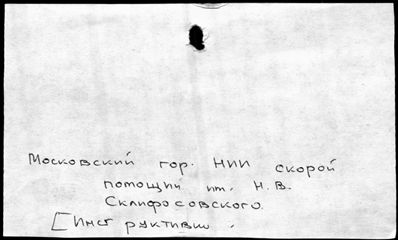 Московский гор. НИИ скорой
помощий им. Н.В.
Склифосовского.
[Инст руктивно.